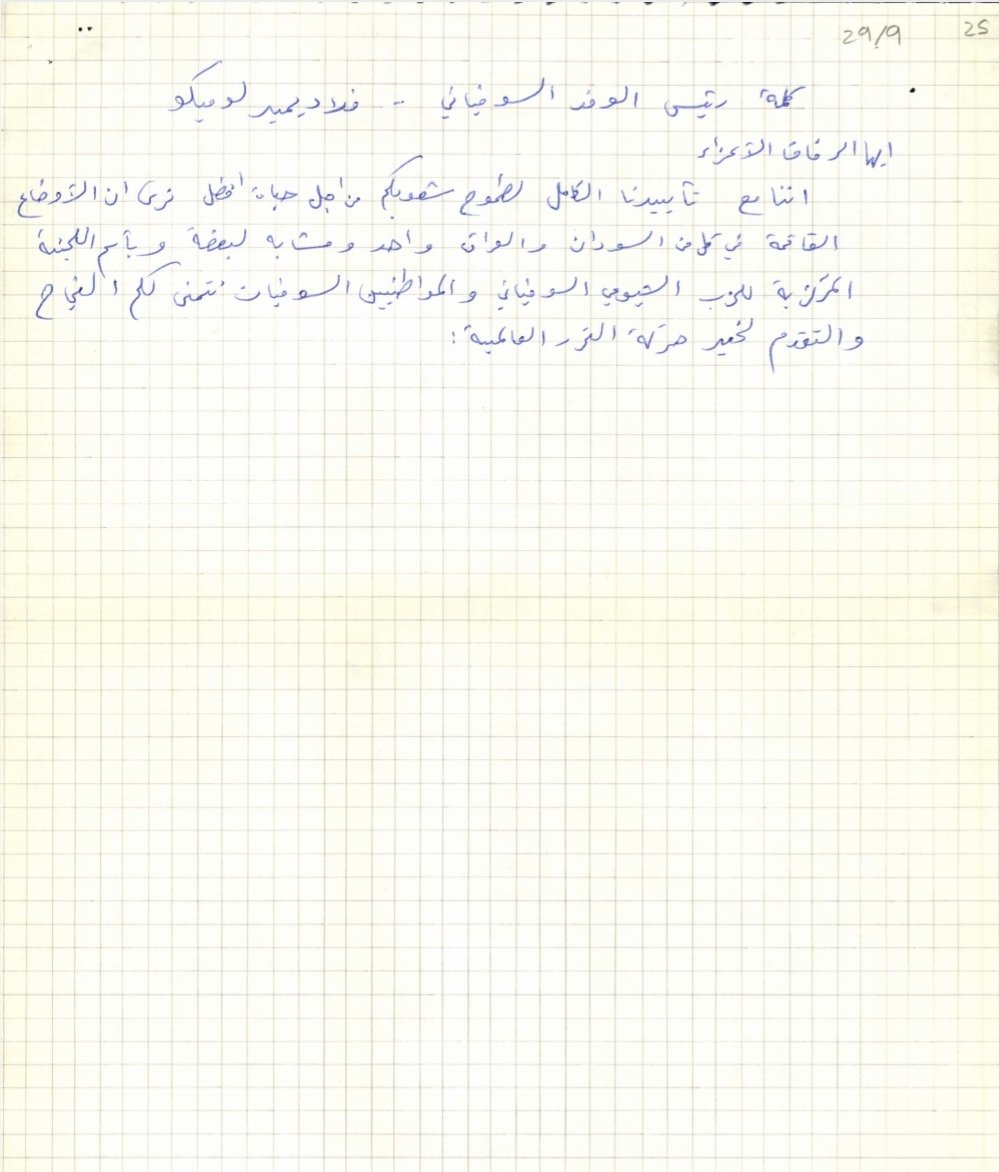 25
29/9
كلمة رئيس الوفد السوفياتي -- فلاديمير لوميكو
ايها الرفاق الاعزاء
اننا مع تأييدنا الكامل لطموح شعوبكم من اجل حياة افضل نرى ان الأوضاع
القائمة في كل من السودان والعراق واحد ومشابه لبعضة وبأسم اللجنة
المركزية للحزب الشيوعي السوفياتي والمواطنيين السوفيات نتمنى لكم النجاح
والتقدم لخير حركة التحرر العالمية: